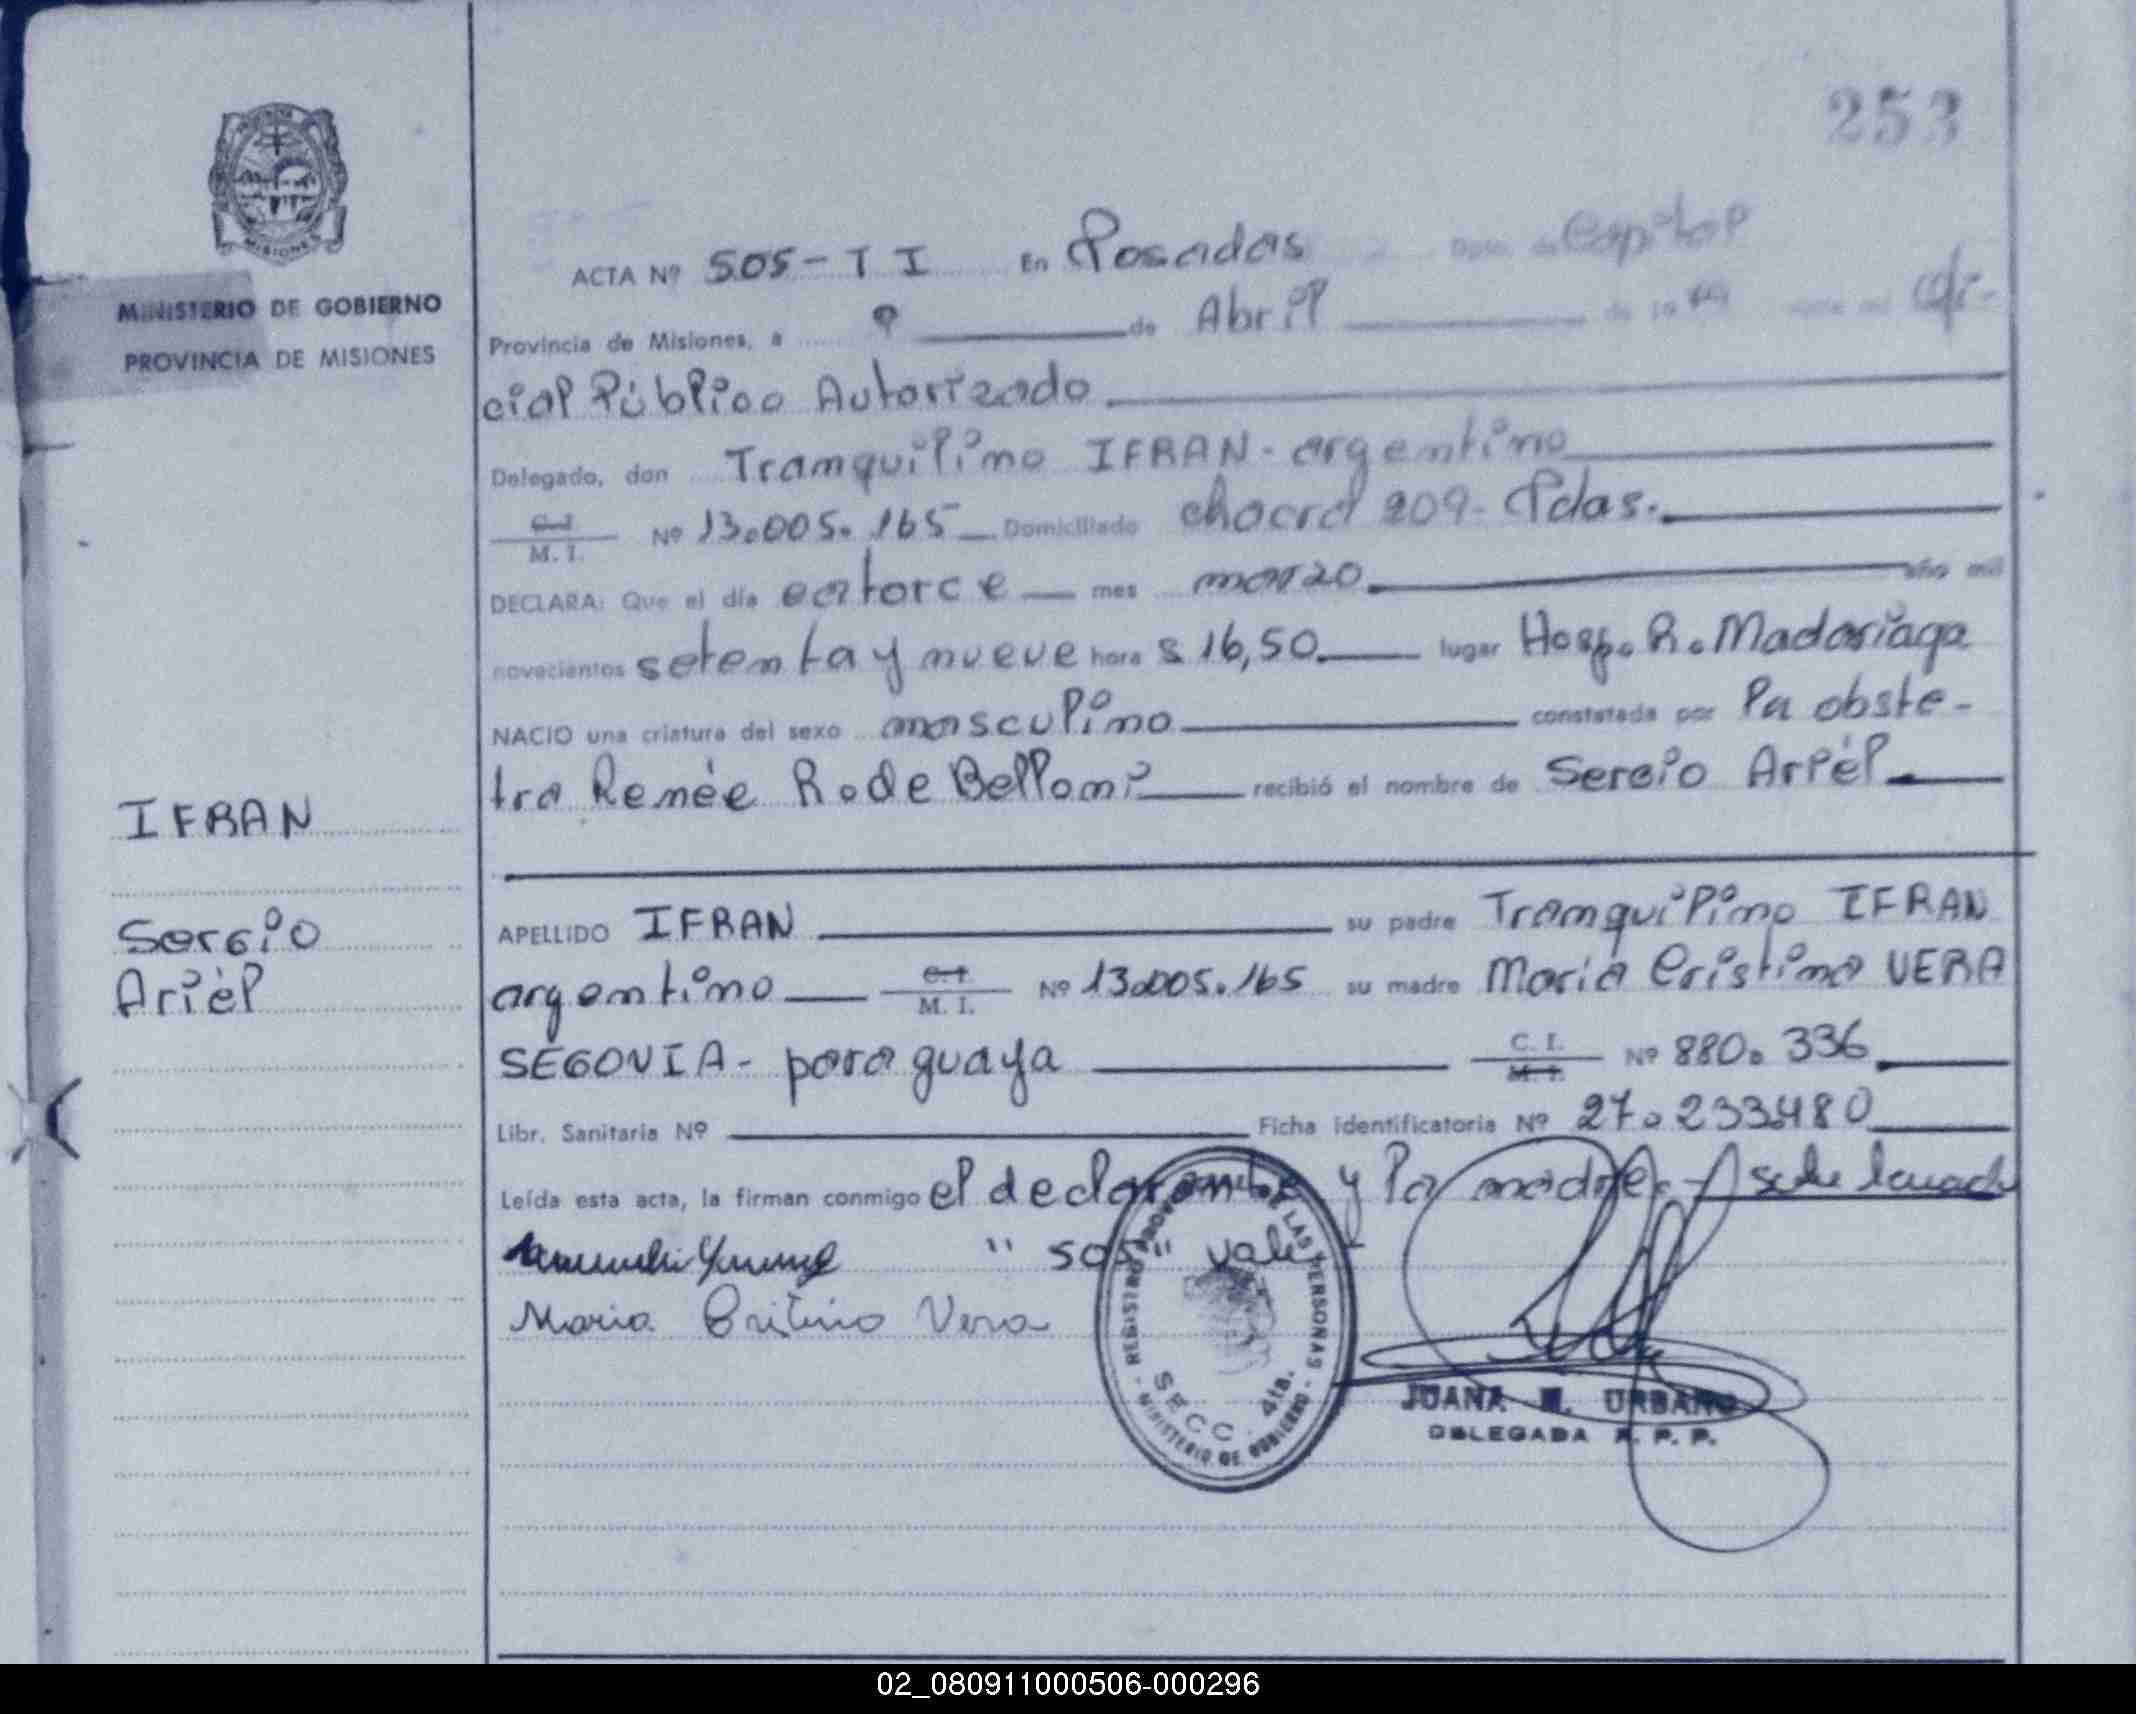 253
MISIONES
MINISTERIO DE GOBIERNO
PROVINCIA DE MISIONES
ACTA Nº 505 - T I En Posadas Dpto. de Capital
Provincia de Misiones, a 9 de Abril de 19 79 ante mí Ofi-
cial Público Autorizado
Delegado, don Tranquilino IFRAN - argentino
C. I. / M. I. Nº 13.005.165 Domiciliado chacra 209 - Pdas.
DECLARA: Que el día catorce mes marzo año mil
novecientos setenta y nueve hora s 16,50 lugar Hosp. R. Madariaga
NACIO una criatura del sexo masculino constatada por la obste-
tra Renée R. de Belloni recibió el nombre de Sergio Ariél
IFRAN
Sergio
Ariél
APELLIDO IFRAN su padre Tranquilino IFRAN
argentino C. I. / M. I. Nº 13.005.165 su madre María Cristina VERA
SEGOVIA - paraguaya C. I. / M. I. Nº 880.336
Libr. Sanitaria Nº Ficha identificatoria Nº 27.233.480
Leída esta acta, la firman conmigo el declarante y la madre.-
"505" vale
Maria Cristina Vera
REGISTRO PROVINCIAL DE LAS PERSONAS
SECC. 4ta.
- MINISTERIO DE GOBIERNO -
JUANA URBANO
DELEGADA R. P. P.
02_080911000506-000296